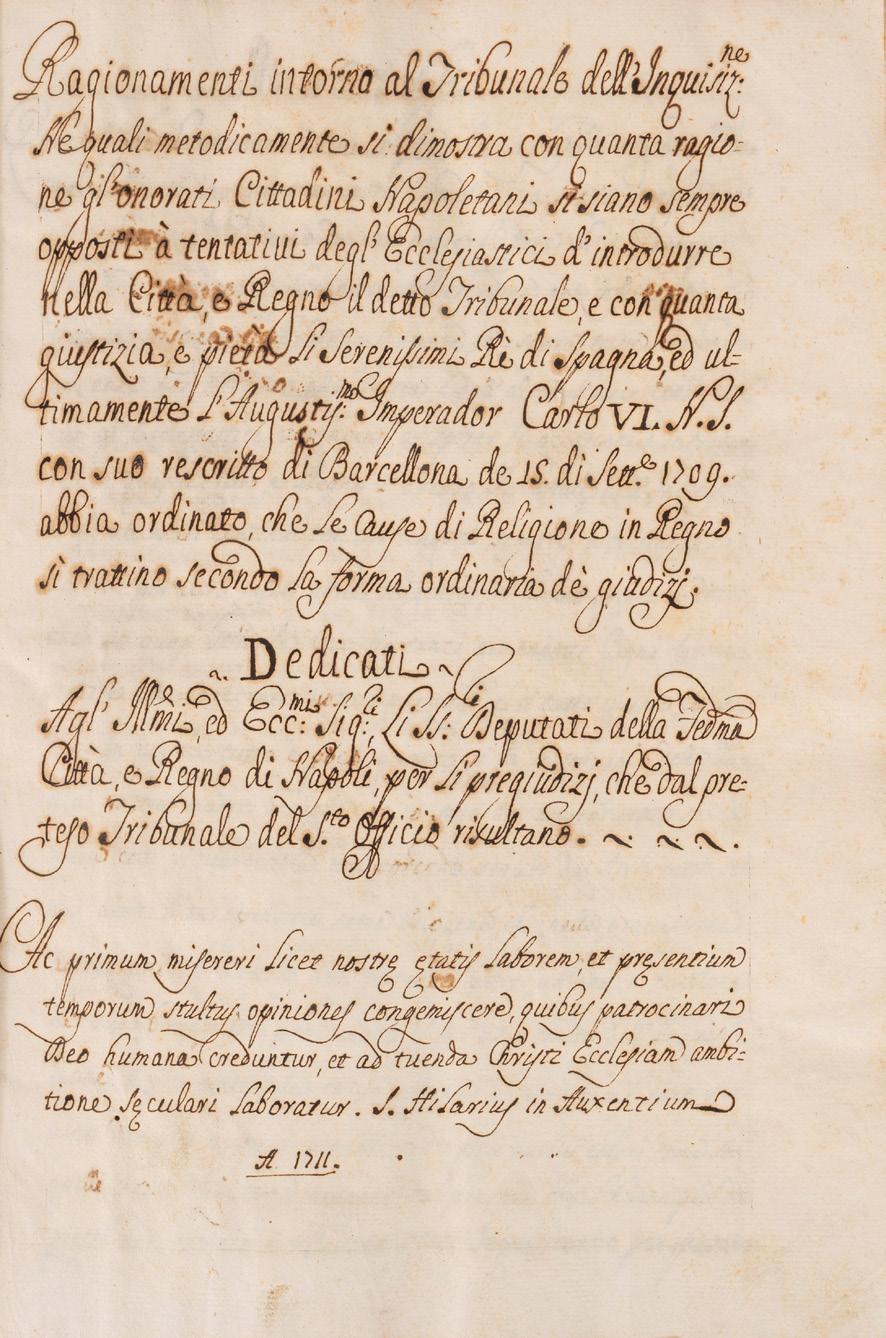 Ragionamenti intorno al Tribunale dell'Inquisiz:ne
Nè quali metodicamente si dimostra con quanta ragio-
ne gl'onorati Cittadini Napoletani si siano sempre
opposti à tentativi degl' Ecclesiastici d'introdurre
nella Città, e Regno il detto Tribunale, e con quanta
giustizia, e pietà li Serenissimi Rè di Spagna, ed ul-
timamente l'Augustiss:mo Imperador Carlo VI. N.S.
con suo rescritto di Barcellona de 15. di Sett.e 1709.
abbia ordinato, che le Cause di Religione in Regno
si trattino secondo la forma ordinaria dè giudizj.
Dedicati
Agl' Illmi, ed Ecc:mi Sig:ri, Li SS:ri Deputati della Fedma
Città, e Regno di Napoli, per li pregiudizj, che dal pre-
teso Tribunale del S.to Officio risultano.
Ac primum misereri licet nostrę ętatis laborem, et pręsentium
temporum stultas opiniones congemiscere, quibus patrocinari
Deo humana creduntur, et ad tuenda Christi Ecclesiam ambi-
tione sęculari laboratur. S. Hilarius in Auxentium
A 1711.